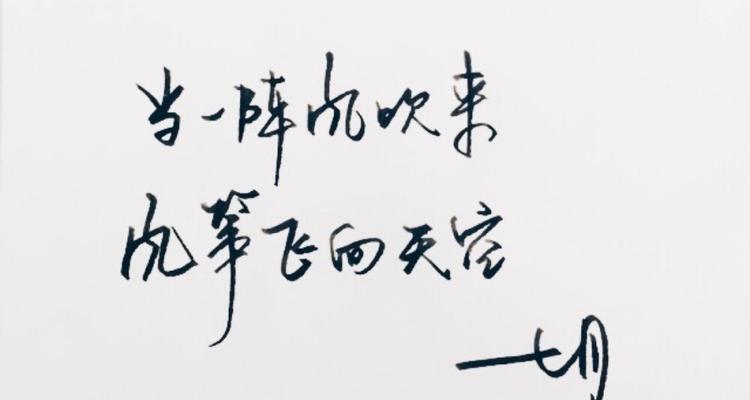 当一阵风吹来
风筝飞向天空
一七月